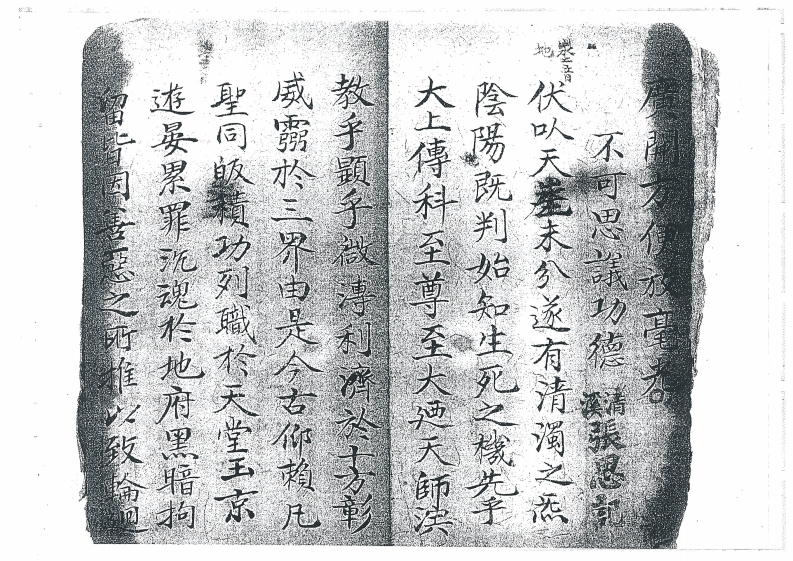 廣開方便放毫光
不可思議功德 清溪張恩記
製音
地
伏以天產未分遂有清濁之炁
陰陽既判始知生死之機先乎
大上傳科至尊至大廼天師洪
教乎顯乎微溥利濟於十方彰
威靈於三界由是今古仰賴凡
聖同皈積功列職於天堂玉京
遊晏累罪沉魂於地府黑暗拘
留皆因善惡之所推以致輪迴